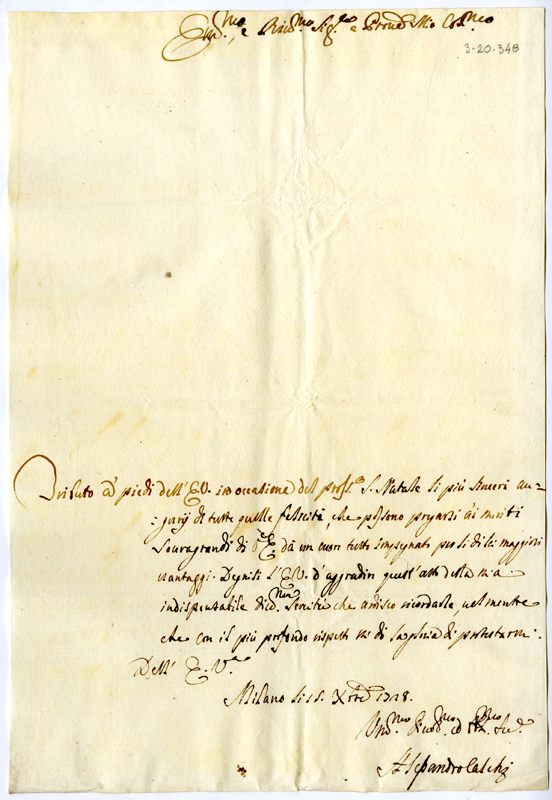 Em.mo, e Rev.mo Sig.re e Prone Mio Col.mo
3-20-348
Tributo a' piedi dell' E.V. in occasione del pross.o S. Natale li più sinceri au-
gurij di tutte quelle felicità, che possono pregarsi ai meriti
souragrandi di V.E. da un cuor tutto impegnato per li di lei maggiori
vantaggi. Degnisi l'E.V. d'aggradir quest'atto della mia
indispensabile div.ma Servitù che ardisco ricordarle, nel mentre
che con il più profondo rispetto mi dò la gloria di protestarmi.
Dell' E. V.ra
Milano li 15. Xbre 1728.
Um.mo Devot.mo ed Obl.mo Ser.
Alessandro